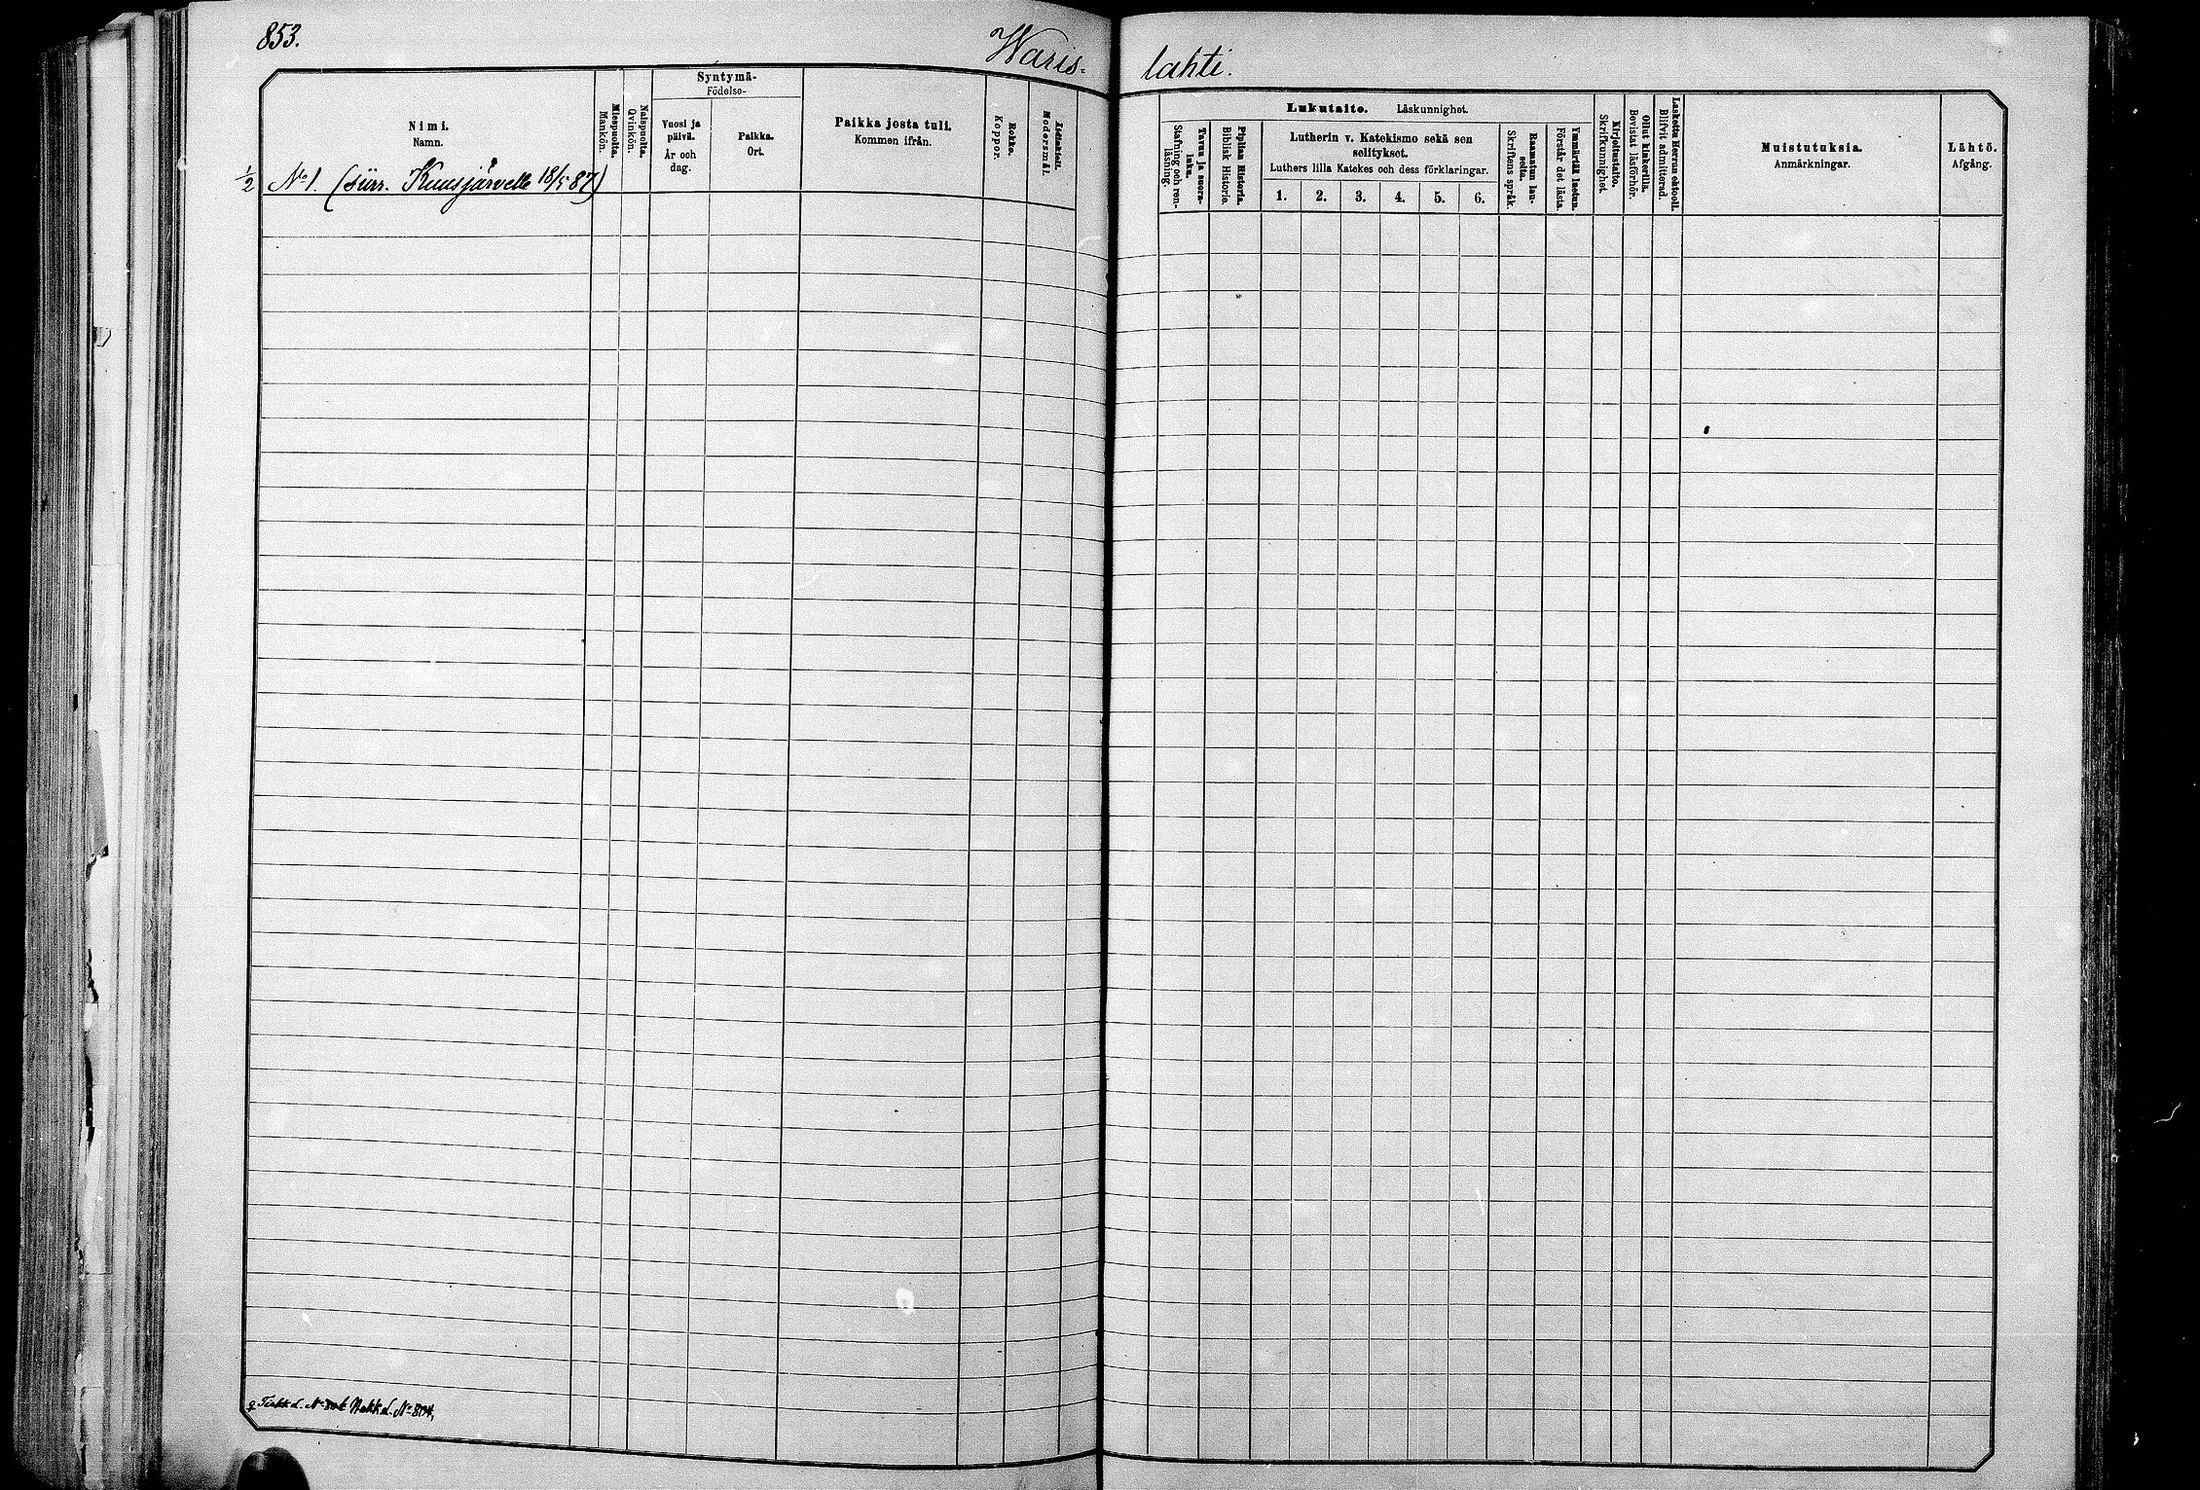 853.
Waris- lahti.
Nimi.
Namn.
Miespuolta.
Mankön.
Naispuolta.
Qvinkön.
Syntymä-
Födelse-
Vuosi ja päivä.
År och dag.
Paikka.
Ort.
Paikka josta tuli.
Kommen ifrån.
Rokko.
Koppor.
Äidinkieli.
Modersmål.
Lukutaito. Läskunnighet.
Tavuu ja suora-luku.
Stafning och ren-läsning.
Piplian Historia.
Biblisk Historie.
Lutherin v. Katekismo sekä sen selitykset.
Luthers lilla Katekes och dess förklaringar.
1. 2. 3. 4. 5. 6.
Raamatun lau-seita.
Skriftens språk.
Ymmärtää luetun.
Förstår det lästa.
Kirjoitustaito.
Skrifkunnighet.
Ollut kinkerillä.
Bevistat läsförhör.
Laskettu Herran ehtoolle.
Blifvit admitterad.
Muistutuksia.
Anmärkningar.
Lähtö.
Afgång.
1/2 No 1. (siirr. Kuusjärvelle 18/5 87)
No 804,